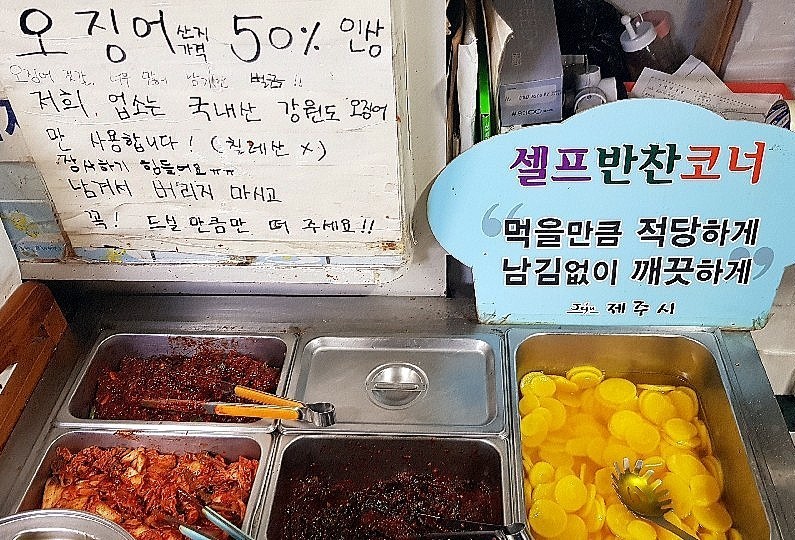 오징어 산지 가격 50% 인상
오징어 너무 많이 남기면 벌금!!
저희, 업소는 국내산 강원도 오징어
만 사용합니다! (칠레산 X)
장사하기 힘들어요ㅠㅠ
남겨서 버리지 마시고
꼭! 드실만큼만 떠 주세요!!
셀프반찬코너
"먹을만큼 적당하게
남김없이 깨끗하게"
Jeju 제주시